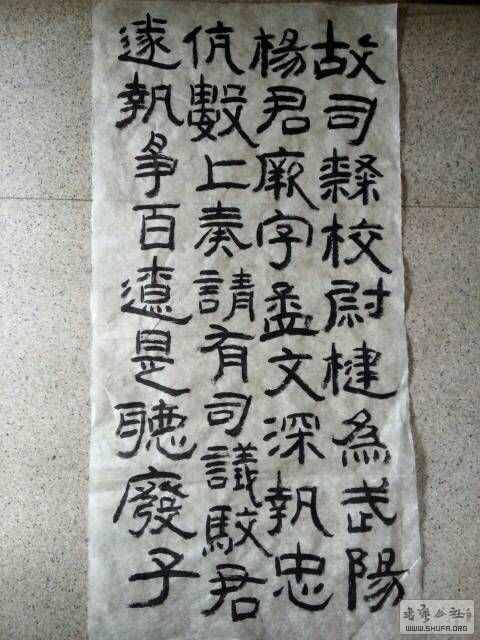 故司隸校尉楗為武陽
楊君厥字孟文深執忠
伉數上奏請有司議駮君
遂執爭百遼是聽廢子
WWW.SHUFA.ORG